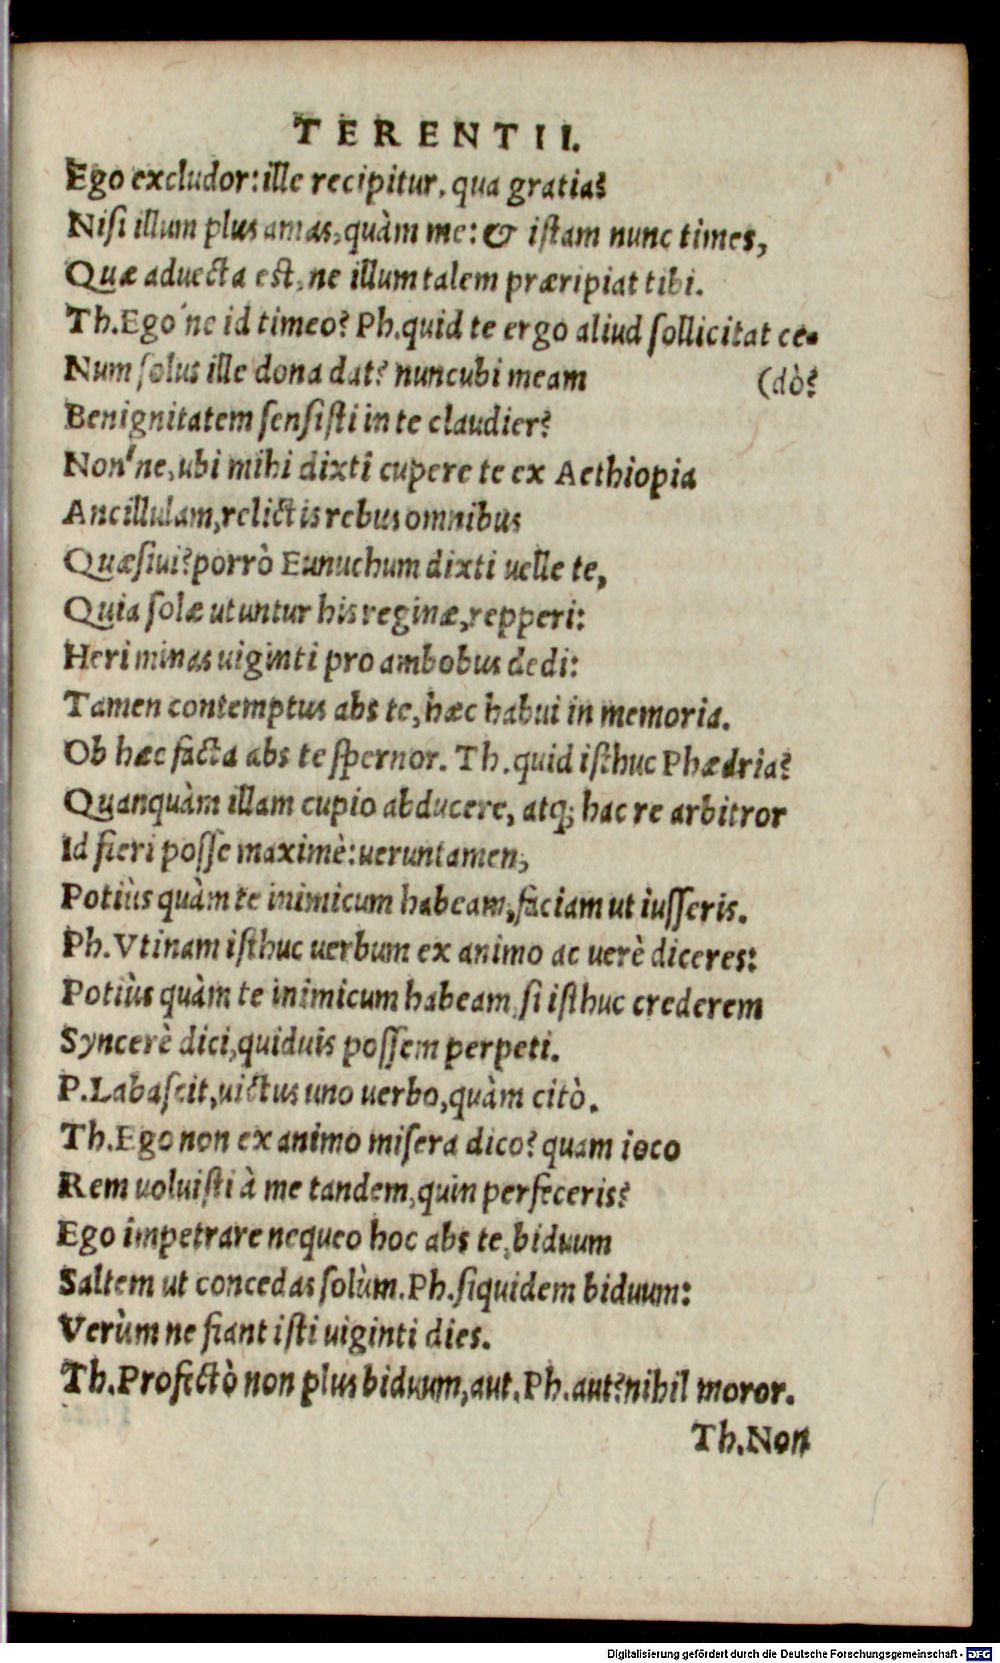 TERENTII.
Ego excludor: ille recipitur. qua gratia?
Nisi illum plus amas, quàm me: & istam nunc times,
Quæ aduecta est, ne illum talem præripiat tibi.
Th. Ego'ne id timeo? Ph. quid te ergo aliud sollicitat ce-
Num solus ille dona dat? nuncubi meam (dò?
Benignitatem sensisti in te claudier?
Non'ne, ubi mihi dixti cupere te ex Aethiopia
Ancillulam, relictis rebus omnibus
Quæsiui? porrò Eunuchum dixti uelle te,
Quia solæ utuntur his reginæ, repperi:
Heri minas uiginti pro ambobus dedi:
Tamen contemptus abs te, hæc habui in memoria.
Ob hæc facta abs te spernor. Th. quid isthuc Phædria?
Quanquàm illam cupio abducere, atq; hac re arbitror
Id fieri posse maximè: ueruntamen,
Potiùs quàm te inimicum habeam, faciam ut iusseris.
Ph. Vtinam isthuc uerbum ex animo ac uerè diceres:
Potiùs quàm te inimicum habeam, si isthuc crederem
Syncerè dici, quiduis possem perpeti.
P. Labascit, uictus uno uerbo, quàm citò.
Th. Ego non ex animo misera dico? quam ioco
Rem uoluisti à me tandem, quin perfeceris?
Ego impetrare nequeo hoc abs te, biduum
Saltem ut concedas solùm. Ph. siquidem biduum:
Verùm ne fiant isti uiginti dies.
Th. Profectò non plus biduum, aut. Ph. aut? nihil moror.
Th. Non
Digitalisierung gefördert durch die Deutsche Forschungsgemeinschaft - DFG